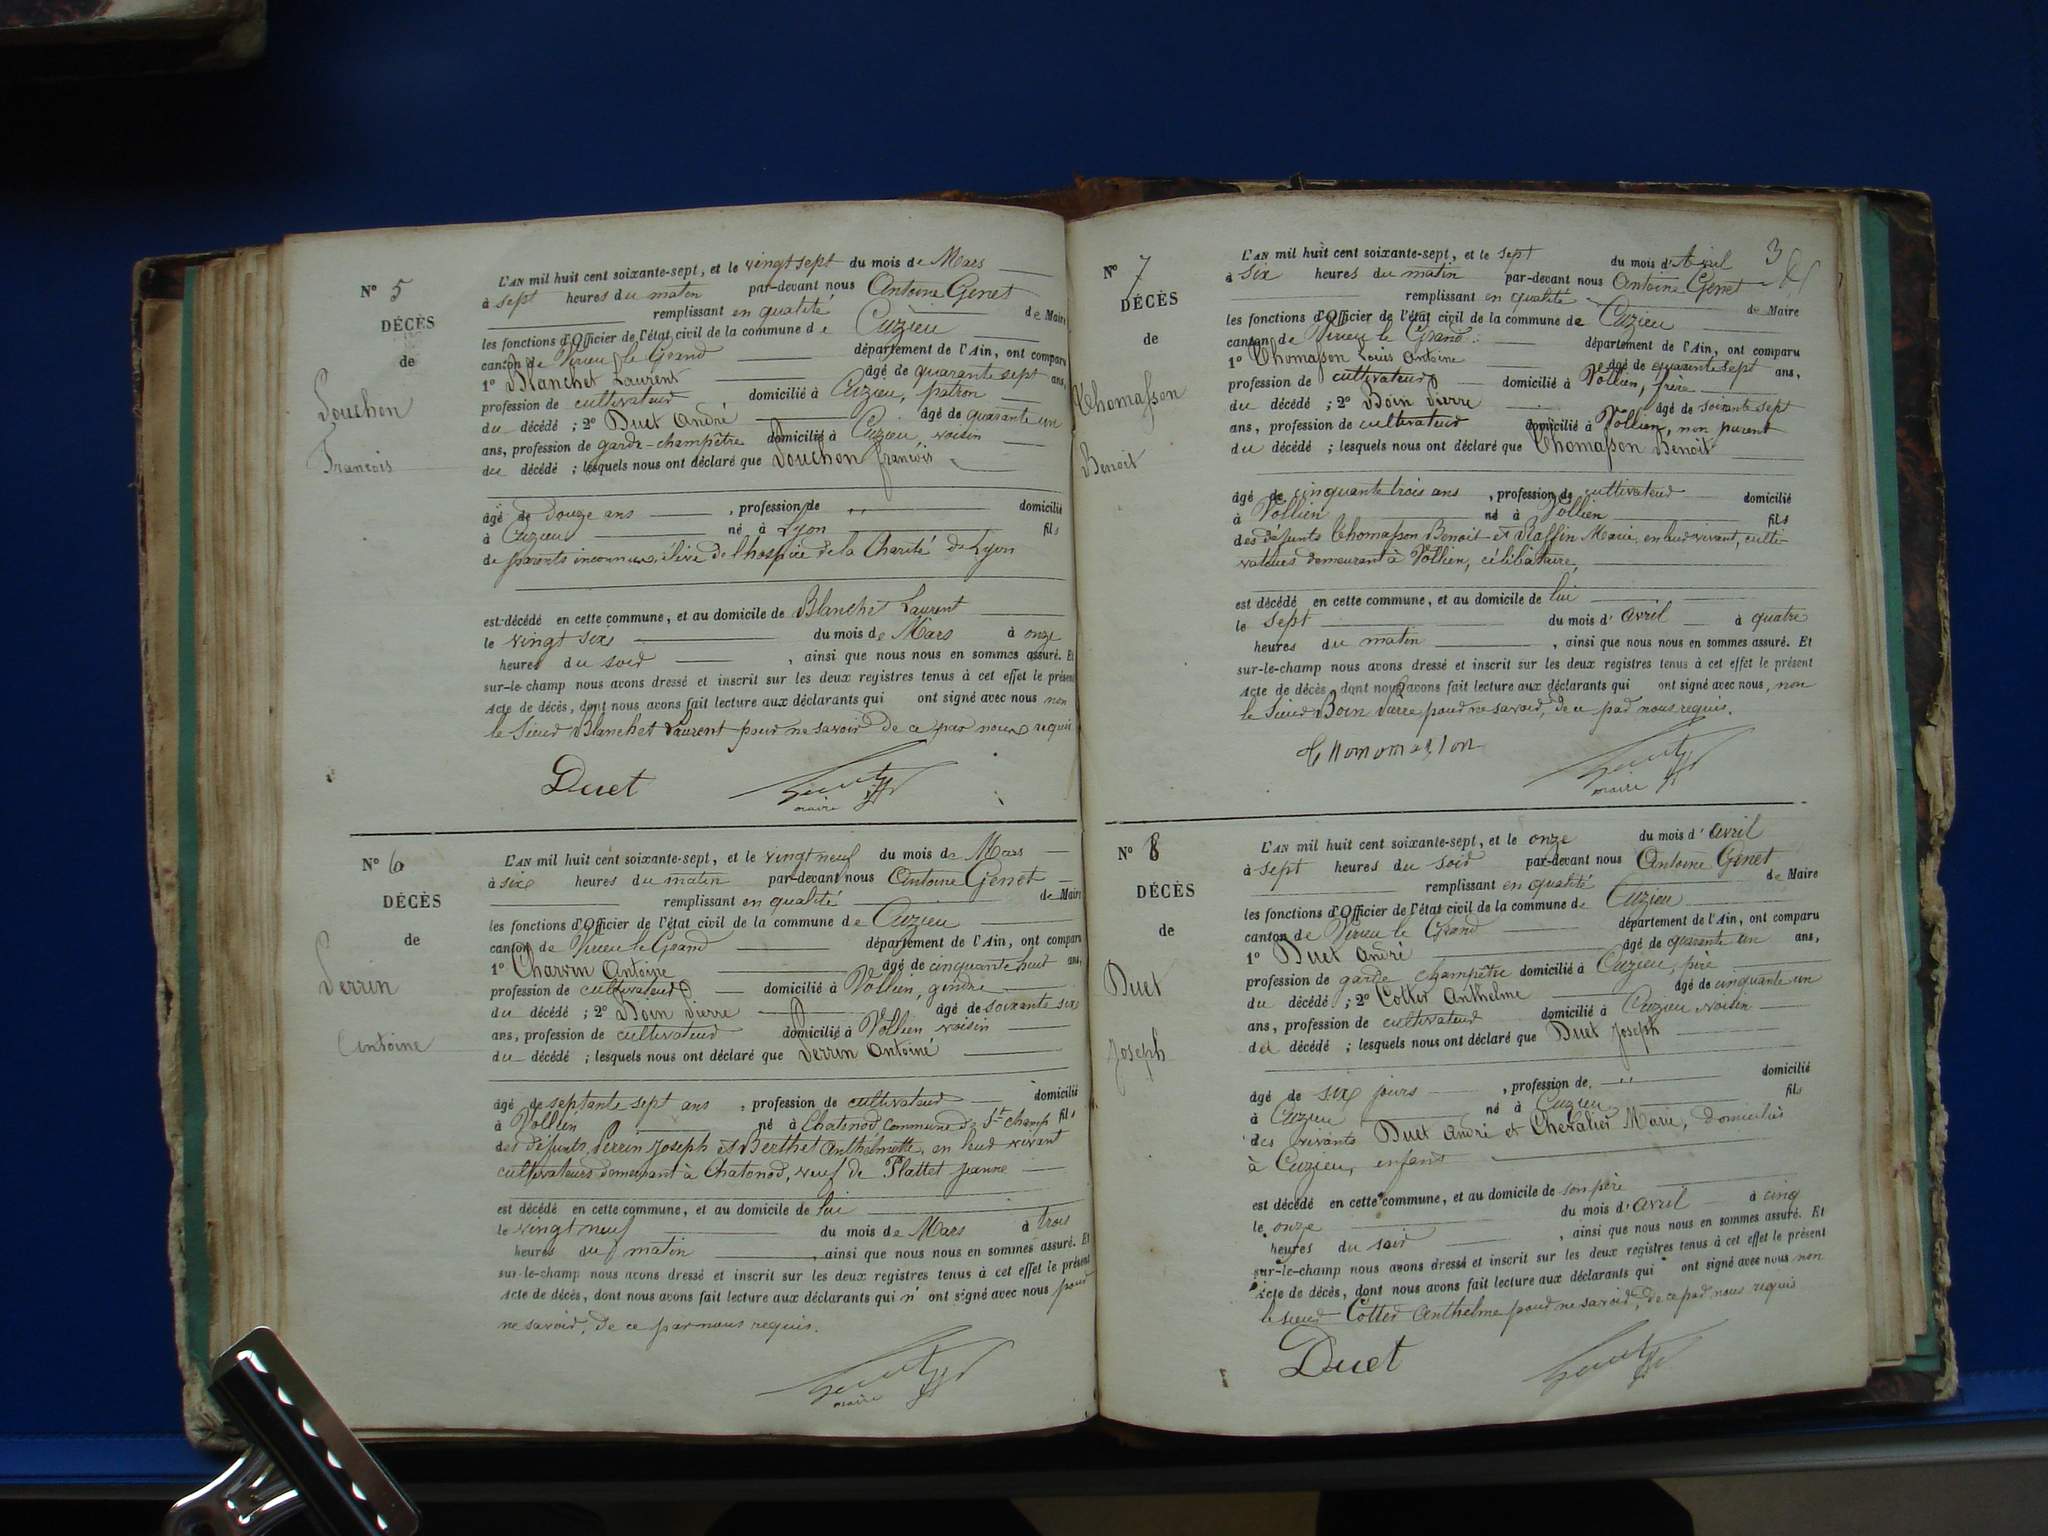 N° 5
DÉCÈS
de
Pouchon
François
L'AN mil huit cent soixante-sept, et le vingt sept du mois de Mars
à sept heures du matin par-devant nous Antoine Genet
remplissant en qualité de Maire
les fonctions d'Officier de l'état civil de la commune de Cuzieu
canton de Virieu le Grand département de l'Ain, ont comparu
1° Blanchet Laurent âgé de quarante sept ans,
profession de cultivateur domicilié à Cuzieu, patron
du décédé ; 2° Duet André âgé de quarante un
ans, profession de garde-champêtre domicilié à Cuzieu, voisin
du décédé ; lesquels nous ont déclaré que Pouchon françois
âgé de douze ans , profession de " domicilié
à Cuzieu né à Lyon fils
de parents inconnus, élève de l'hospice de la Charité de Lyon
est décédé en cette commune, et au domicile de Blanchet Laurent
le vingt six du mois de Mars à onze
heures du soir , ainsi que nous nous en sommes assuré. Et
sur-le-champ nous avons dressé et inscrit sur les deux registres tenus à cet effet le présent
acte de décès, dont nous avons fait lecture aux déclarants qui ont signé avec nous non
le Sieur Blanchet Laurent pour ne savoir de ce par nous requis
Duet
maire
N° 6
DÉCÈS
de
Perrin
Antoine
L'AN mil huit cent soixante-sept, et le vingt neuf du mois de Mars
à six heures du matin par-devant nous Antoine Genet
remplissant en qualité de Maire
les fonctions d'Officier de l'état civil de la commune de Cuzieu
canton de Virieu le Grand département de l'Ain, ont comparu
1° Charvin Antoine âgé de cinquante huit ans,
profession de cultivateur domicilié à Vollien, gendre
du décédé ; 2° Boin Pierre âgé de soixante six
ans, profession de cultivateur domicilié à Vollien voisin
du décédé ; lesquels nous ont déclaré que Perrin Antoine
âgé de septante sept ans , profession de cultivateur domicilié
à Vollien né à Chatonod commune de St champ fils
des défunts Perrin Joseph et Berthet Anthelmette, en leur vivant
cultivateurs demeurant à Chatonod, veuf de Plattet Jeanne
est décédé en cette commune, et au domicile de lui
le vingt neuf du mois de Mars à trois
heures du matin , ainsi que nous nous en sommes assuré. Et
sur-le-champ nous avons dressé et inscrit sur les deux registres tenus à cet effet le présent
acte de décès, dont nous avons fait lecture aux déclarants qui n' ont signé avec nous pour
ne savoir, de ce par nous requis.
maire
3
N° 7
DÉCÈS
de
Thomasson
Benoit
L'AN mil huit cent soixante-sept, et le sept du mois d'Avril
à six heures du matin par-devant nous Antoine Genet
remplissant en qualité de Maire
les fonctions d'Officier de l'état civil de la commune de Cuzieu
canton de Virieu le Grand département de l'Ain, ont comparu
1° Thomasson Louis Antoine âgé de quarante sept ans,
profession de cultivateur domicilié à Vollien, frère
du décédé ; 2° Boin Pierre âgé de soixante sept
ans, profession de cultivateur domicilié à Vollien, non parent
du décédé ; lesquels nous ont déclaré que Thomasson Benoit
âgé de cinquante trois ans , profession de cultivateur domicilié
à Vollien né à Vollien fils
des défunts Thomasson Benoit et Marie, en leur vivant, culti-
vateurs demeurant à Vollien, célibataire,
est décédé en cette commune, et au domicile de lui
le sept du mois d' avril à quatre
heures du matin , ainsi que nous nous en sommes assuré. Et
sur-le-champ nous avons dressé et inscrit sur les deux registres tenus à cet effet le présent
acte de décès, dont nous avons fait lecture aux déclarants qui ont signé avec nous, non
le Sieur Boin Pierre pour ne savoir, de ce par nous requis.
maire
N° 8
DÉCÈS
de
Duet
Joseph
L'AN mil huit cent soixante-sept, et le onze du mois d' avril
à sept heures du soir par-devant nous Antoine Genet
remplissant en qualité de Maire
les fonctions d'Officier de l'état civil de la commune de Cuzieu
canton de Virieu le Grand département de l'Ain, ont comparu
1° Duet André âgé de quarante un ans,
profession de garde champêtre domicilié à Cuzieu, père
du décédé ; 2° Cottier Anthelme âgé de cinquante un
ans, profession de cultivateur domicilié à Cuzieu voisin
du décédé ; lesquels nous ont déclaré que Duet Joseph
âgé de six jours , profession de " domicilié
à Cuzieu né à Cuzieu fils
des vivants Duet André et Chevalier Marie, domiciliés
à Cuzieu, enfant
est décédé en cette commune, et au domicile de son père
le onze du mois d' avril à cinq
heures du soir , ainsi que nous nous en sommes assuré. Et
sur-le-champ nous avons dressé et inscrit sur les deux registres tenus à cet effet le présent
acte de décès, dont nous avons fait lecture aux déclarants qui ont signé avec nous non
le sieur Cottier Anthelme pour ne savoir, de ce par nous requis
Duet